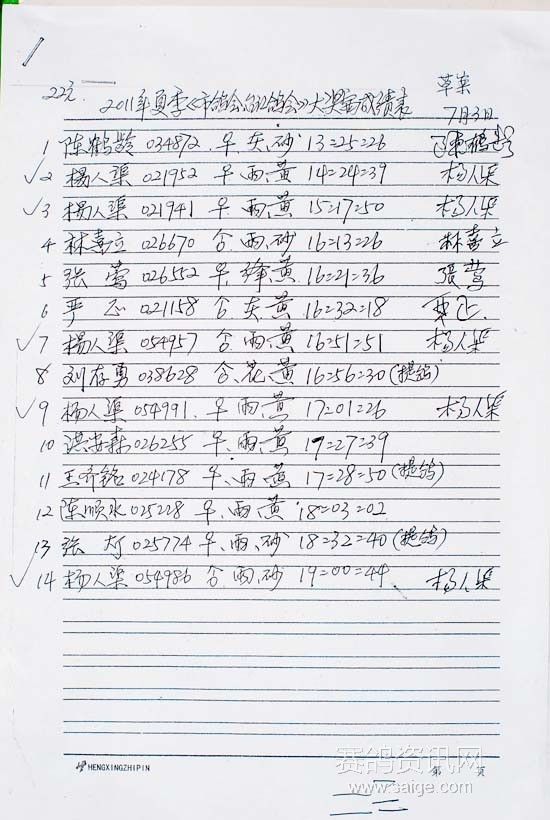 草案
22元. 2011年夏季《市鸽会、台江鸽会》大奖赛成绩表 7月3日
1 陈鹤龄 034872 早 灰、砂 13=25=26 陈鹤龄
2 杨人渠 021952 早 雨、黄 14=24=39 杨人渠
3 杨人渠 021941 早 雨、黄 15=17=50 杨人渠
4 林喜立 026670 合 雨、砂 16=13=26 林喜立
5 张 莺 026552 早、绛 黄 16=21=36 張莺
6 严 正 021158 合 灰、黄 16=32=18 严正
7 杨人渠 054957 合 雨、黄 16=51=51 杨人渠
8 刘存勇 038628 合、花、黄 16=56=30(提鸽)
9 杨人渠 054991. 早 雨、黄 17=01=26 杨人渠
10 洪安森 026255 早、雨、黄 17=27=39
11 王齐铭 024178 早、雨 黄 17=28=50(提鸽)
12 陈顺水 025228 早、雨、黄 18=03=02
13 张 灯 025774 早、雨、砂 18=32=40(提鸽)
14 杨人渠 054986 合 雨、砂 19=00=44 杨人渠
HENGXINGZHIPIN 第 页
赛鸽资讯网
www.saige.com